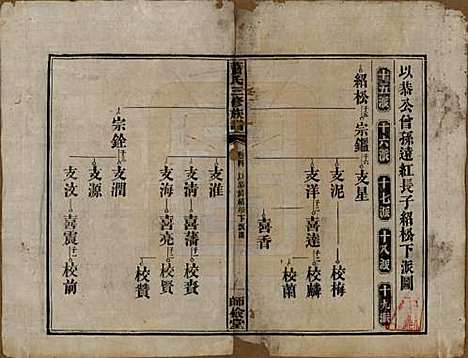 以恭公曾孫遠紅長子紹松下派圖
十五派 十六派 十七派 十八派 十九派
紹松 宗鑑 支星
支泥 校梅
支洋 喜達 校麟
校蘭
喜香
氏三修族譜
師儉堂
支淮
支清 喜藩 校賚
支海 喜亮 校贊
宗銓 支潤
支源
支汶 喜震 校前